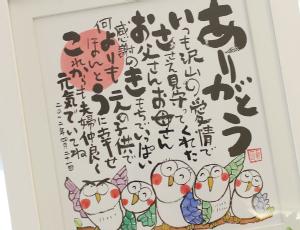 ありがとう
いつも沢山の愛情で
ささえ見守ってくれた
お父さんお母さん
感謝のきもちいっぱい
何よりも二人の子供で
ほんとうに幸せ
これからも夫婦仲良く
元気でいてね